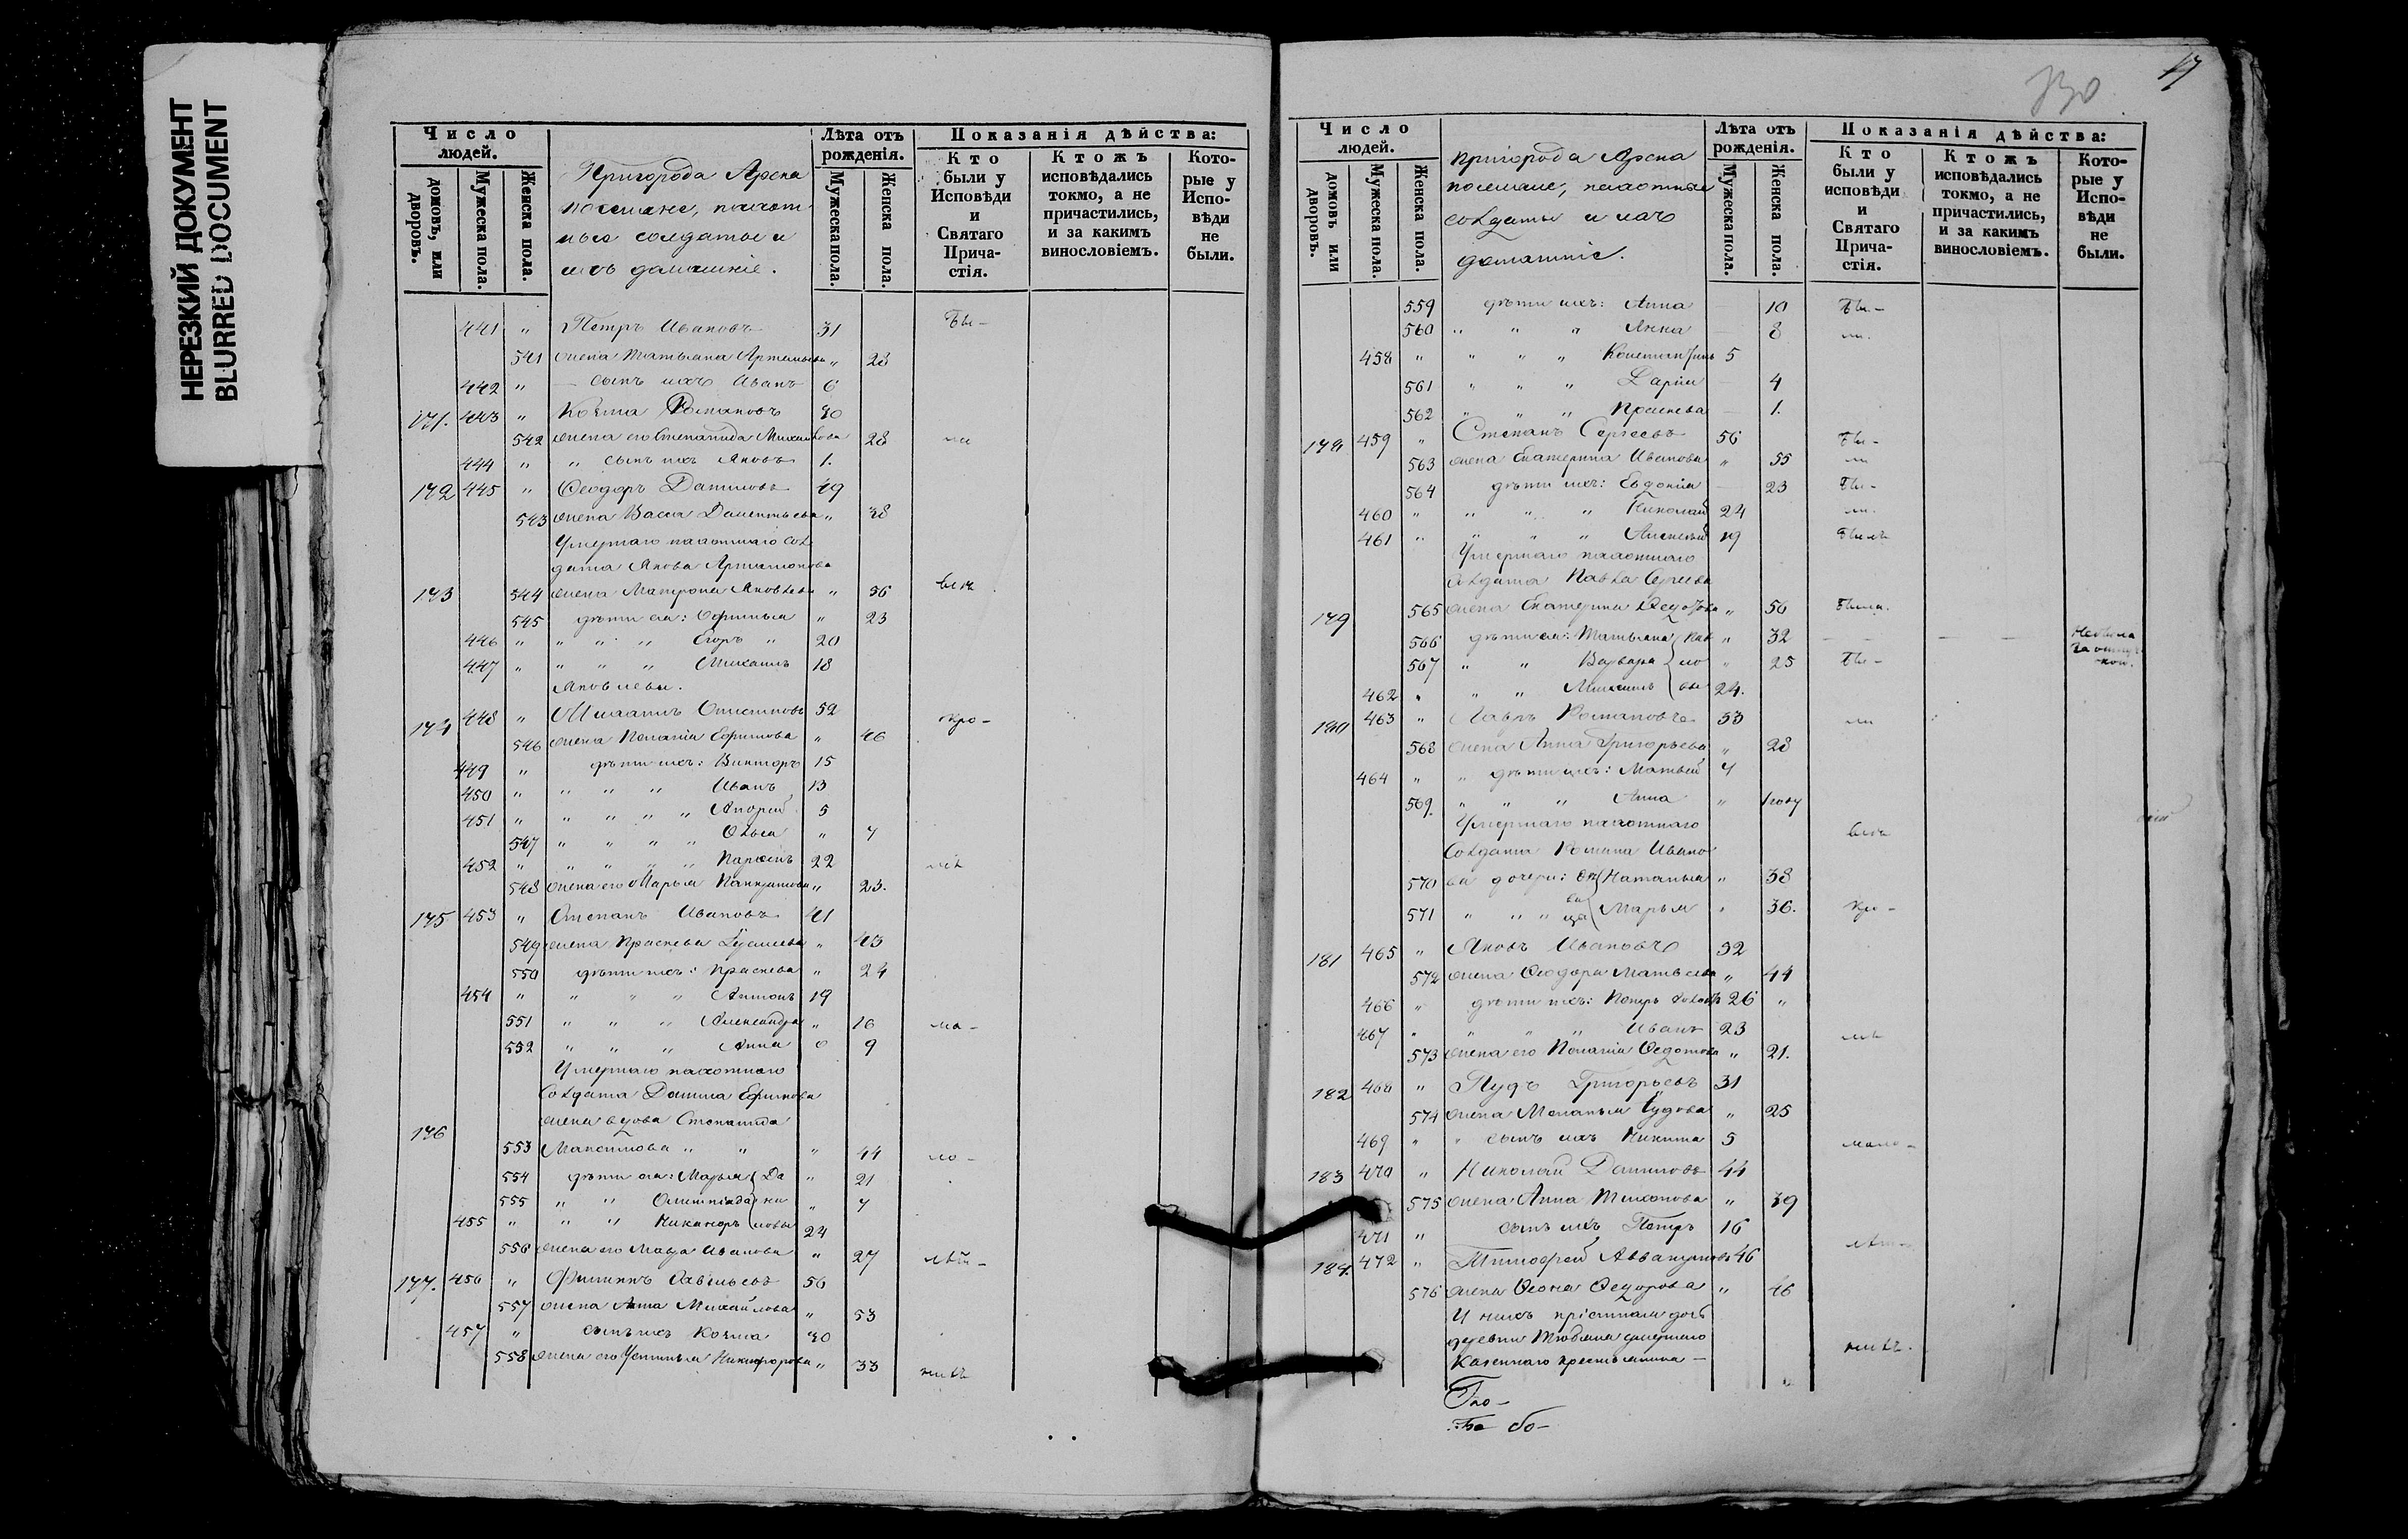 НЕРЕЗКИЙ ДОКУМЕНТ
BLURRED DOCUMENT
Число людей.
домовъ, или дворовъ.
Мужеска пола.
Женска пола.
Пригорода Арска
поселяне, пахот-
ные солдаты и
ихъ домашніе.
Лѣта отъ рожденія.
Мужеска пола.
Женска пола.
Показанія дѣйства:
Кто были у Исповѣди и Святаго Прича-стія.
Ктожъ исповѣдались токмо, а не причастились, и за какимъ винословіемъ.
Кото-рые у Испо-вѣди не были.
441 " Петръ Ивановъ 31 Бы-
541 жена Татьяна Артемьева " 28
442 " сынъ ихъ Иванъ 6
171. 443 " Козма Романовъ 30
542 жена его Степанида Михайлова 28
444 " " сынъ ихъ Яковъ 1.
172 445 " Ѳеодоръ Даниловъ 49
543 жена Васса Дементьева " 38
Умершаго пахотнаго сол
дата Якова Артамонова
173 544 жена Матрона Яковлева " 56
545 дѣти ея: Ефимья " 23
446 " " " " Егоръ " 20
447 " " " " Михаилъ 18
Яковлевы.
174 448 " Михаилъ 52
546 жена Пелагія Ефимова " 46
449 " дѣти ихъ: Викторъ 15
450 " " " " Иванъ 13
451 " " " " " Андрей 5
547 " " " " Ольга " 7
452 " " " " " 22
548 жена его Марья Панкратова " 23.
175 453 " Степанъ Ивановъ 41
549 жена Прасковья " 43
550 дѣти ихъ: Прасковья " 24
454 " " " " Антонъ 19
551 " " " Александра " 16
552 " " " Анна 9
Умершаго пахотнаго
Солдата Данила Ефимова
жена вдова Степанида
176
553 Максимова " " " 44
554 дѣти ея: Марья Да " 21
555 " " Олимпіада ни " 7
455 " " " Никаноръ ловы 24
556 жена его Мавра Иванова " 27
177. 456 " Филиппъ Савельевъ 56
557 жена Анна Михайлова " 53
457 " сынъ ихъ Козма 30
558 жена его Устинья Никифорова " 33
17
730
Число людей.
домовъ или дворовъ.
Мужеска пола.
Женска пола.
пригорода Арска
поселяне, пахотные
солдаты и ихъ
домашніе.
Лѣта отъ рожденія.
Мужеска пола.
Женска пола.
Показанія дѣйства:
Кто были у исповѣди и Святаго Прича-стія.
Ктожъ исповѣдались токмо, а не причастились, и за какимъ винословіемъ.
Кото-рые у Испо-вѣди не были.
559 дѣти ихъ: Анна — 10 Бы-
560 " " " Анна — 8
458 " " " " Константинъ 5
561 " " " Дарія — 4
562 " " " Прасковья — 1.
178 459 " Степанъ Сергеевъ 56 Бы-
563 жена Екатерина Иванова " 55
564 дѣти ихъ: Евдокія — 23 Бы-
460 " " " " Николай 24
461 " " " " Алексѣй 19
Умершаго пахотнаго
солдата Павла Сергеева
179 565 жена Екатерина Ѳедотова " 50 Была.
566 дѣти ея: Татьяна Пав " 32 — — — Не была за отлуч-кой.
567 " " Варвара ло " 25 Бы-
462 " " " Михаилъ вы 24.
180 463 " Лавръ Романовъ 33
568 жена Анна Григорьева " 28
464 " " дѣти ихъ: Матвѣй 4
569. " " " Анна " 1 году
Умершаго пахотнаго
Солдата Романа Ивано
570 ва дочери: Наталья " 38
571 " " " Марья " 36.
181 465 " Яковъ Ивановъ 32
572 жена Ѳеодора Матвѣева " 44
466 " дѣти ихъ: Петръ 26 "
467 " " " " Иванъ 23
573 жена его Пелагія Ѳедотова " 21.
182 468 " Пудъ Григорьевъ 31
574 жена Меланья " 25
469 " " сынъ ихъ Никита 5
183 470 " Николай Даниловъ 44
575 жена Анна Тихонова " 39
471 " сынъ ихъ Петръ 16
184. 472 " Тимофей Аввакумовъ 46
576 жена Ѳеодорова " 46
У нихъ пріемная дочь
деревни умершаго
Казеннаго крестьянина —